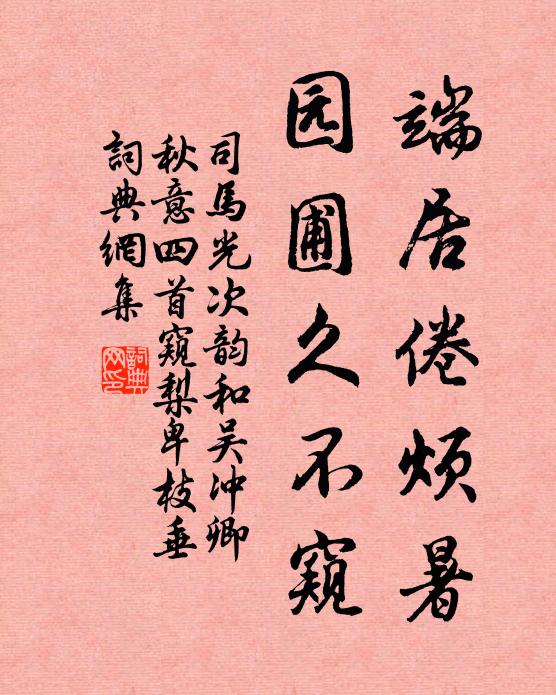 端居倦烦暑
园圃久不窥
司馬光次韵和吴冲卿
秋意四首窺梨卑枝垂
詞典網集
詞典网印